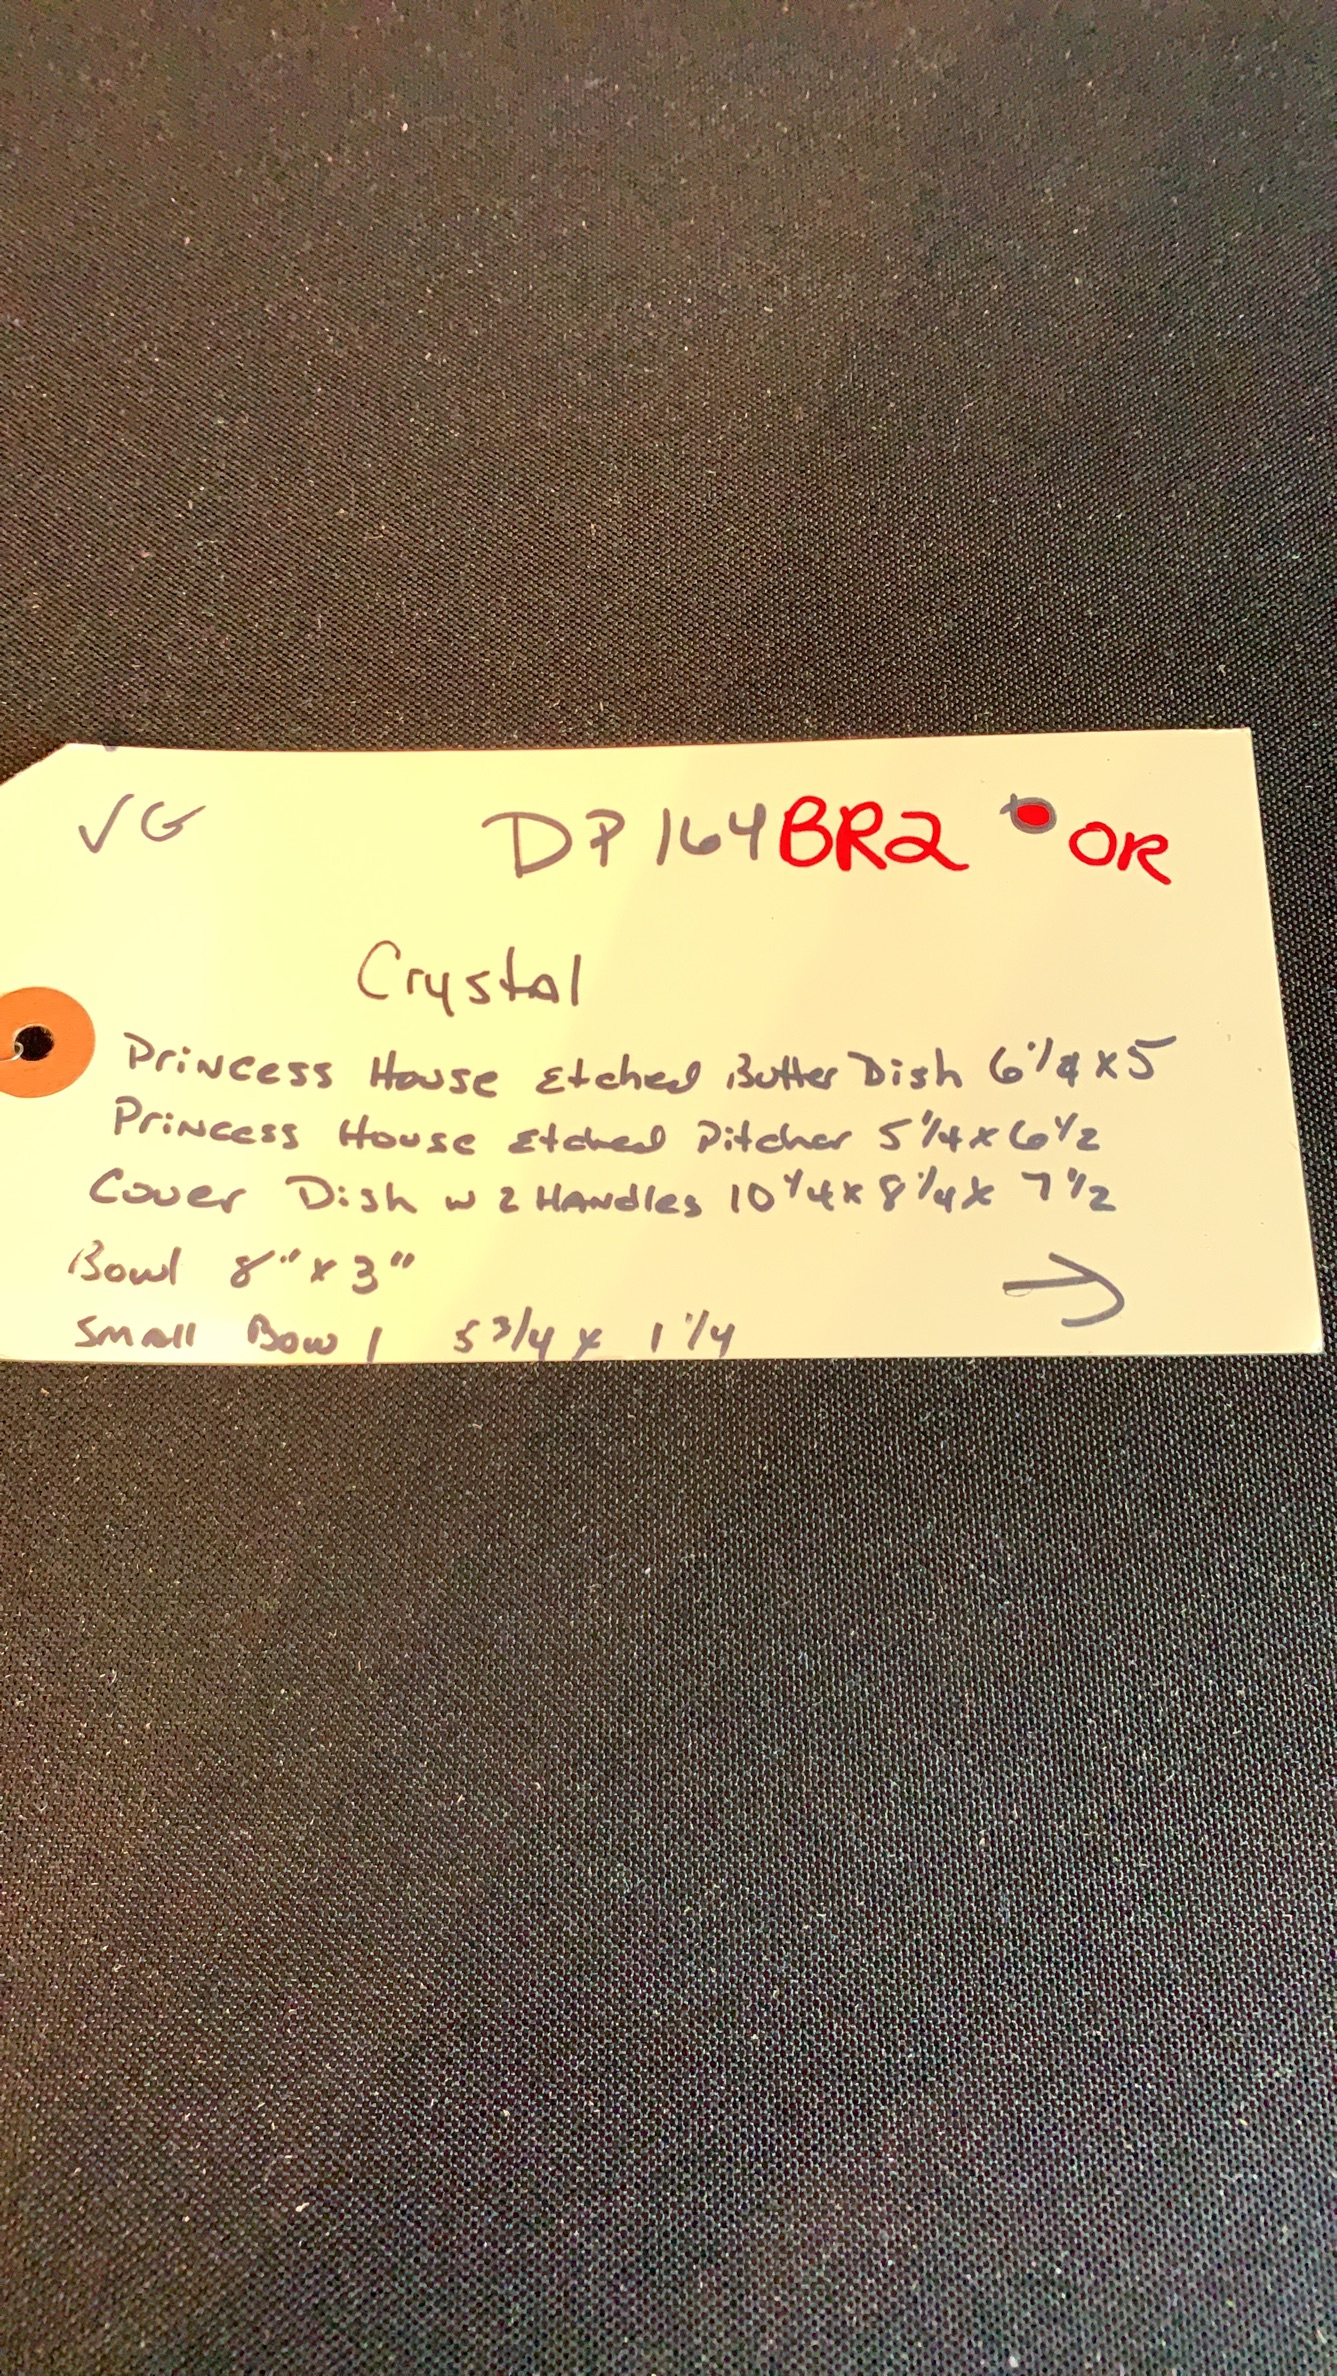 VG DP164BR2 OR
Crystal
Princess House Etched Butter Dish 6 1/4 x 5
Princess House Etched Pitcher 5 1/4 x 6 1/2
Cover Dish w 2 HANdles 10 1/4 x 8 1/4 x 7 1/2
Bowl 8" x 3"
Small Bowl 5 3/4 x 1 1/4